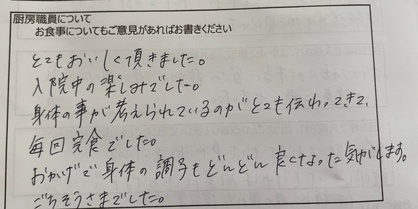 厨房職員について
お食事についてもご意見があればお書きください
とてもおいしく頂きました。
入院中の楽しみでした。
身体の事が考えられているのがとても伝わってきて、
毎回完食でした。
おかげで身体の調子もどんどん良くなった気がします。
ごちそうさまでした。